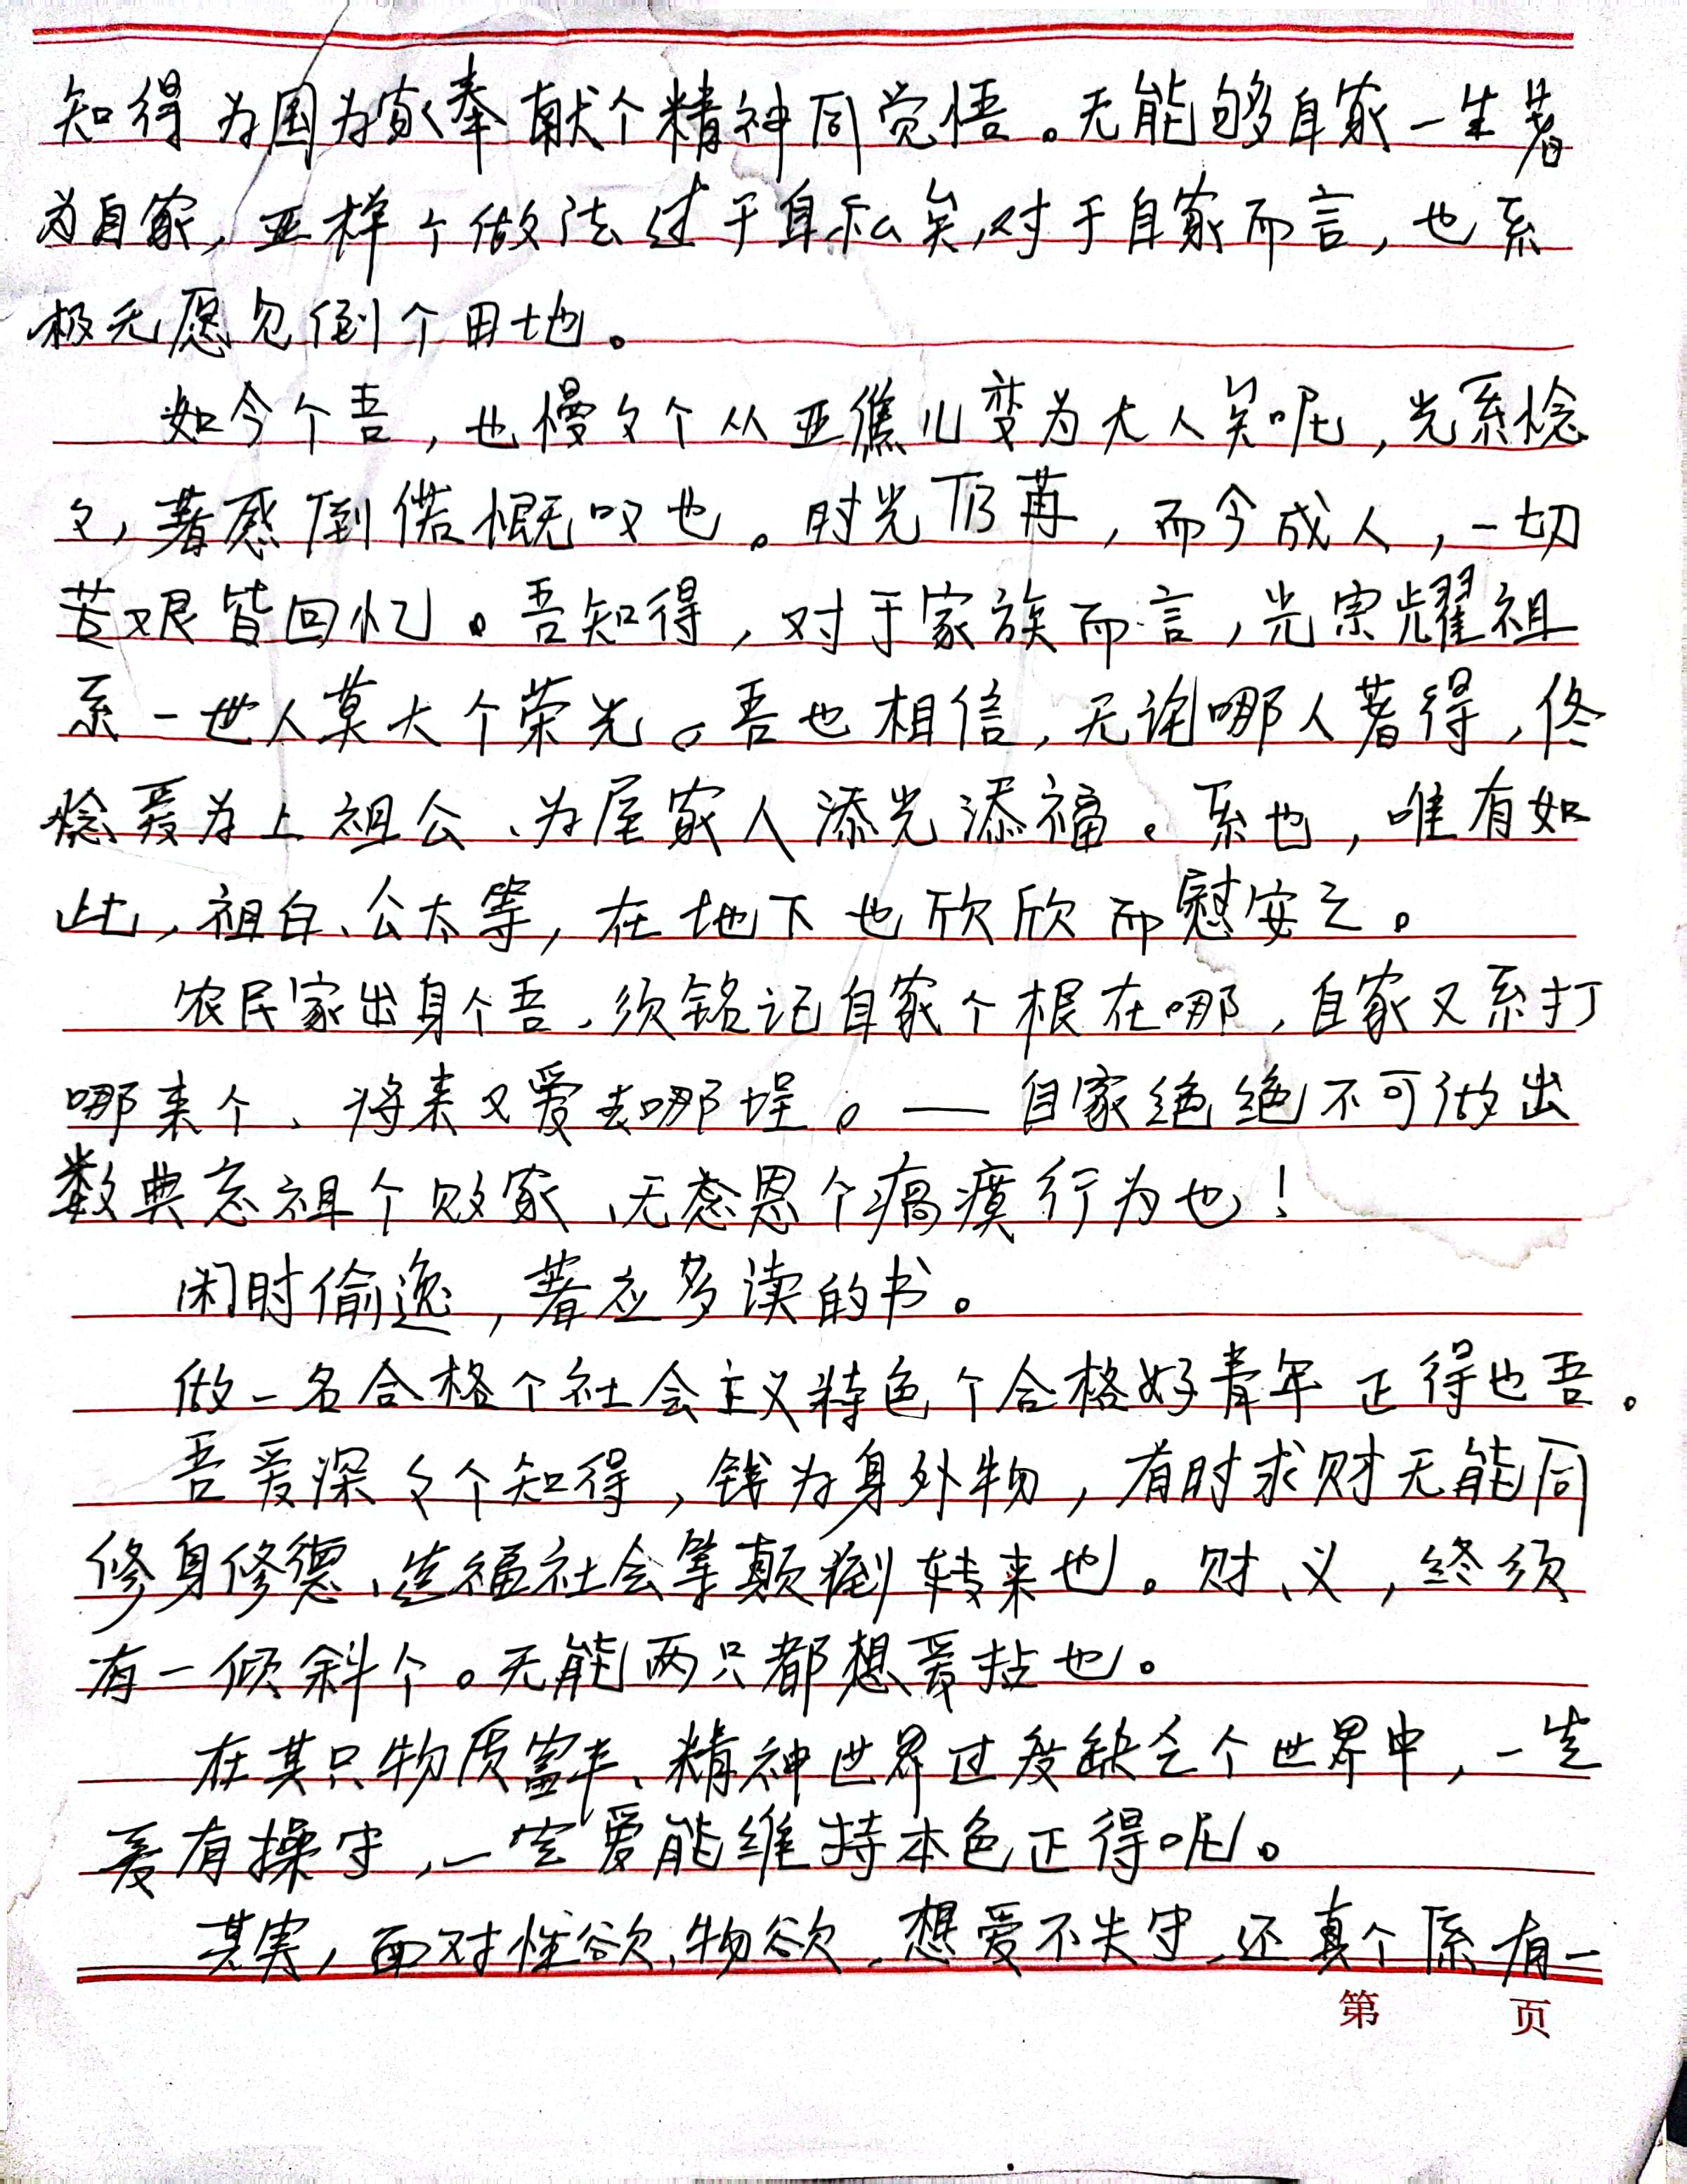 知得为国为家奉献个精神同觉悟。无能够自家一生着
为自家，亚样个做法过于自私矣，对于自家而言，也系
极无愿见倒个田地。
如今个吾，也慢々个从亚僬儿变为大人矣呢，光系惗
々，着感倒偌慨叹也。时光仍苒，而今成人，一切
苦艰皆回忆。吾知得，对于家族而言，光宗耀祖
系一世人莫大个荣光。吾也相信，无论哪人着得，佟
惗爱为上祖公、为屋家人添光添福。系也，唯有如
此，祖白、公太等，在地下也欣欣而慰安之。
农民家出身个吾，须铭记自家个根在哪，自家又系打
哪来个、将来又爱去哪埕。——自家绝绝不可做出
数典忘祖个败家、无感恩个痟癀行为也！
闲时偷逸，着应多读的书。
做一名合格个社会主义特色个合格好青年正得也吾。
吾爱深々个知得，钱为身外物，有时求财无能同
修身修德、造福社会等颠倒转来也。财、义，终须
有一倾斜个。无能两只都想爱拈也。
在其只物质富丰、精神世界过度缺乏个世界中，一定
爱有操守，一定爱能维持本色正得呢。
其实，面对性欲、物欲，想爱不失守，还真个係有一
第 页